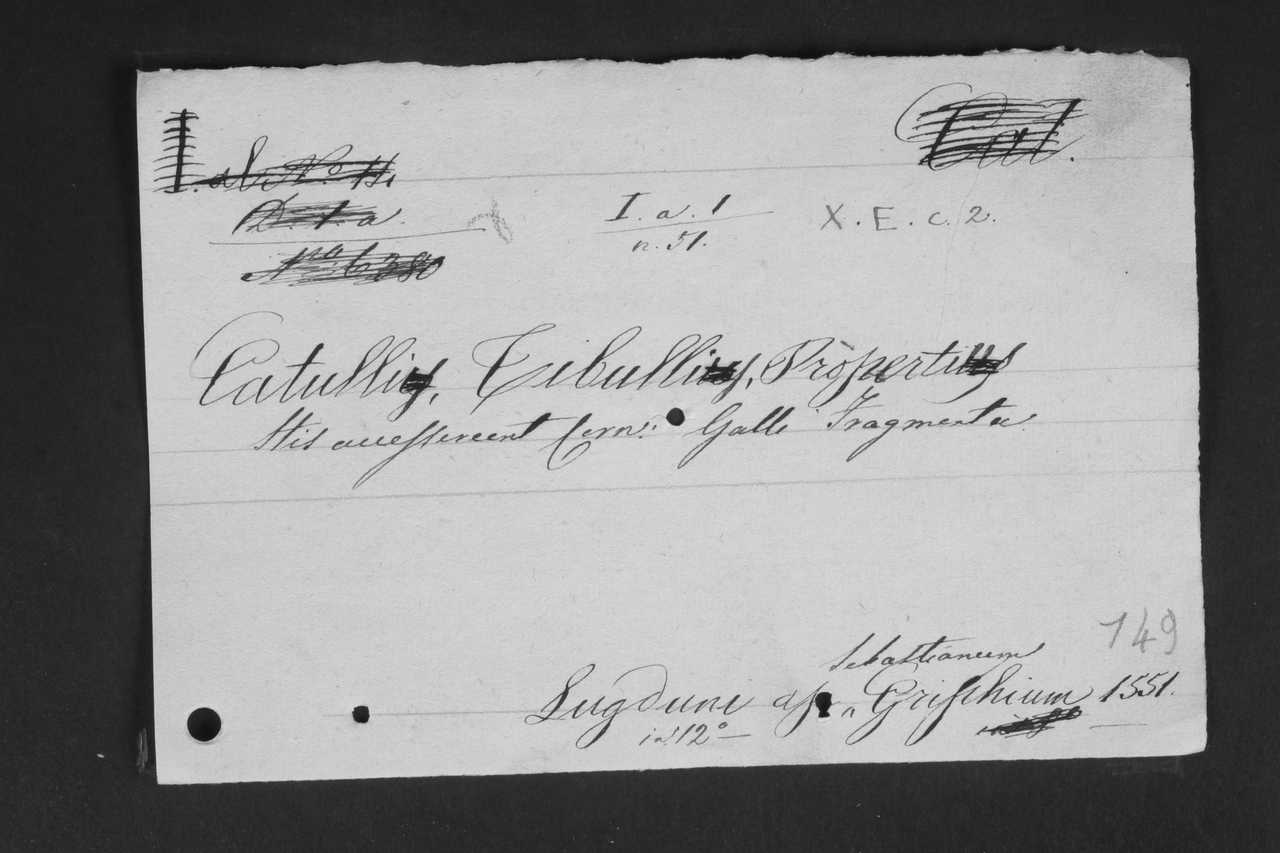 Cat.
D. 1. a.
I. a. 1
n. 51.
X. E. c. 2.
Nro 6380
Catullus, Tibullus, Propertius
His accesserunt Corn: Galli Fragmenta.
149
Sebastianum
Lugduni ap. Griphium 1551.
in 12º